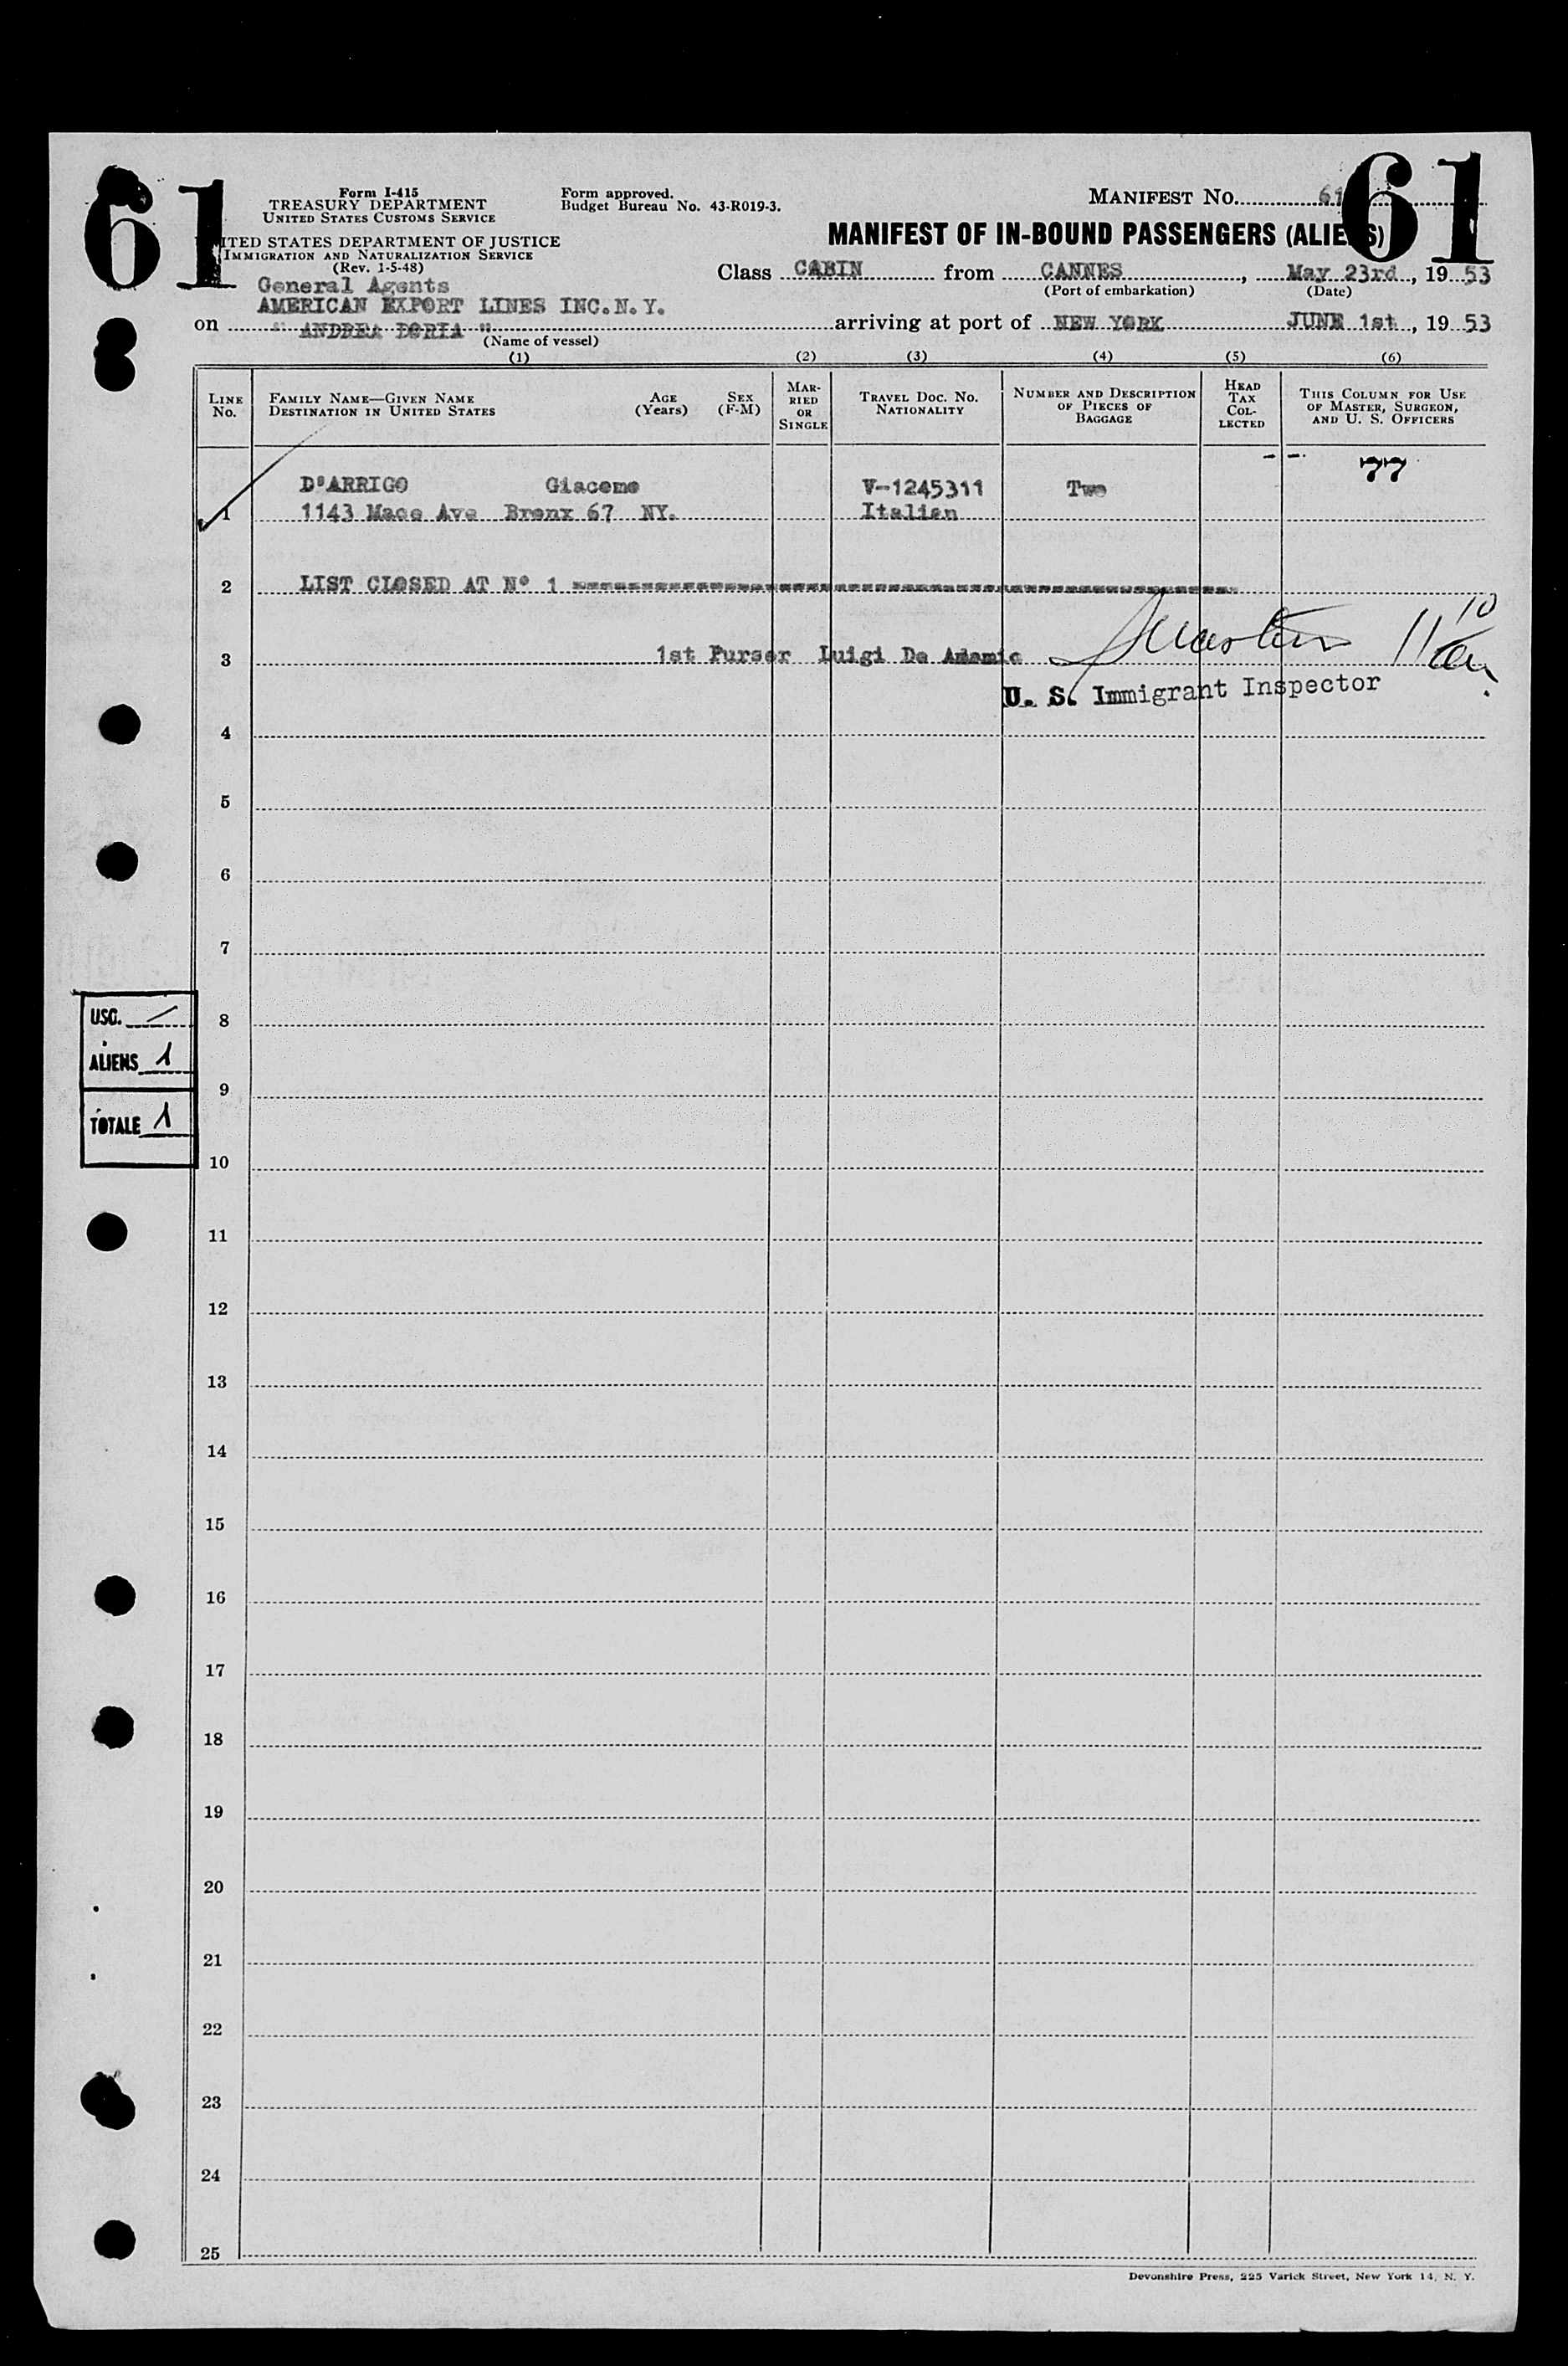 61
61
Form I-415
TREASURY DEPARTMENT
UNITED STATES CUSTOMS SERVICE
ITED STATES DEPARTMENT OF JUSTICE
IMMIGRATION AND NATURALIZATION SERVICE
(Rev. 1-5-48)
Form approved.
Budget Bureau No. 43-R019-3.
MANIFEST NO. 61
MANIFEST OF IN-BOUND PASSENGERS (ALIENS)
Class CABIN from CANNES, May 23rd, 1953
(Port of embarkation) (Date)
General Agents
AMERICAN EXPORT LINES INC.N.Y.
on " ANDREA DORIA " arriving at port of NEW YORK JUNE 1st, 1953
(Name of vessel)
(1) (2) (3) (4) (5) (6)
LINE No.
FAMILY NAME—GIVEN NAME
DESTINATION IN UNITED STATES
AGE (Years)
SEX (F-M)
MARRIED OR SINGLE
TRAVEL DOC. NO. NATIONALITY
NUMBER AND DESCRIPTION OF PIECES OF BAGGAGE
HEAD TAX COLLECTED
THIS COLUMN FOR USE OF MASTER, SURGEON, AND U. S. OFFICERS
77
D'ARRIGO Giacomo V-1245311 Two
1 1143 Mace Ave Bronx 67 NY. Italian
2 LIST CLOSED AT N° 1
3 1st Purser Luigi De Adamic
11 10
U. S. Immigrant Inspector
4
5
6
7
8
9
10
11
12
13
14
15
16
17
18
19
20
21
22
23
24
25
USC. /
ALIENS 1
TOTALE 1
Devonshire Press, 225 Varick Street, New York 14, N. Y.